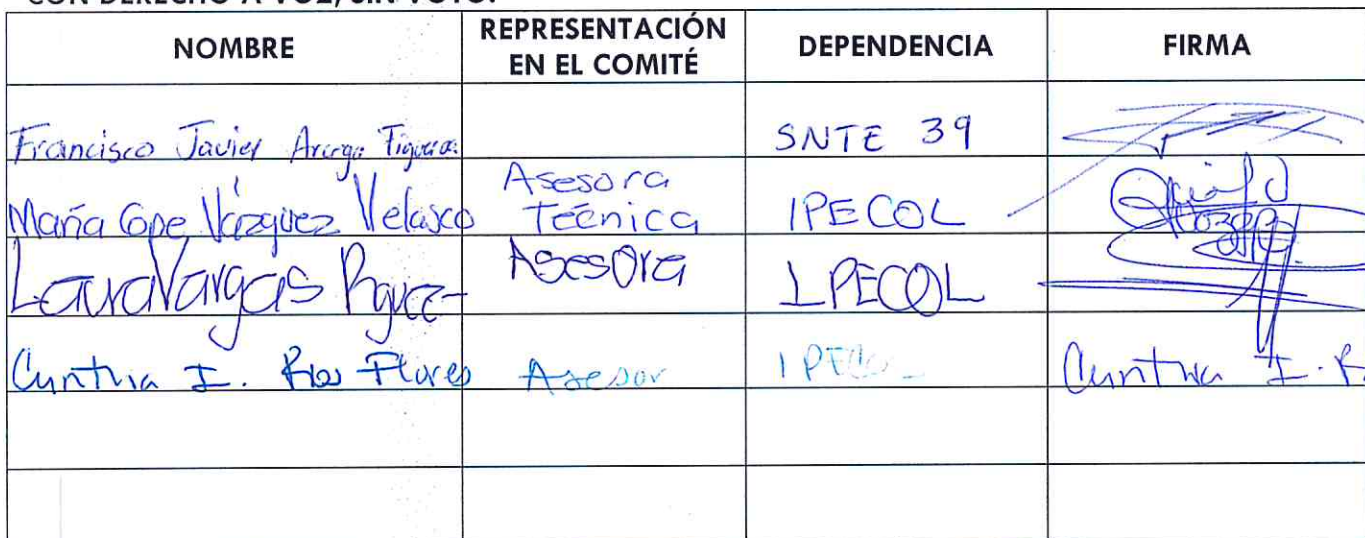 CON DERECHO A VOZ, SIN VOTO.
NOMBRE
REPRESENTACIÓN
EN EL COMITÉ
DEPENDENCIA
FIRMA
Francisco Javier
SNTE 39
María Gpe Vázquez Velasco
Asesora
Técnica
IPECOL
Laura Vargas
Asesora
IPECOL
Cynthia I. Ríos Flores
Asesor
Cynthia I. R